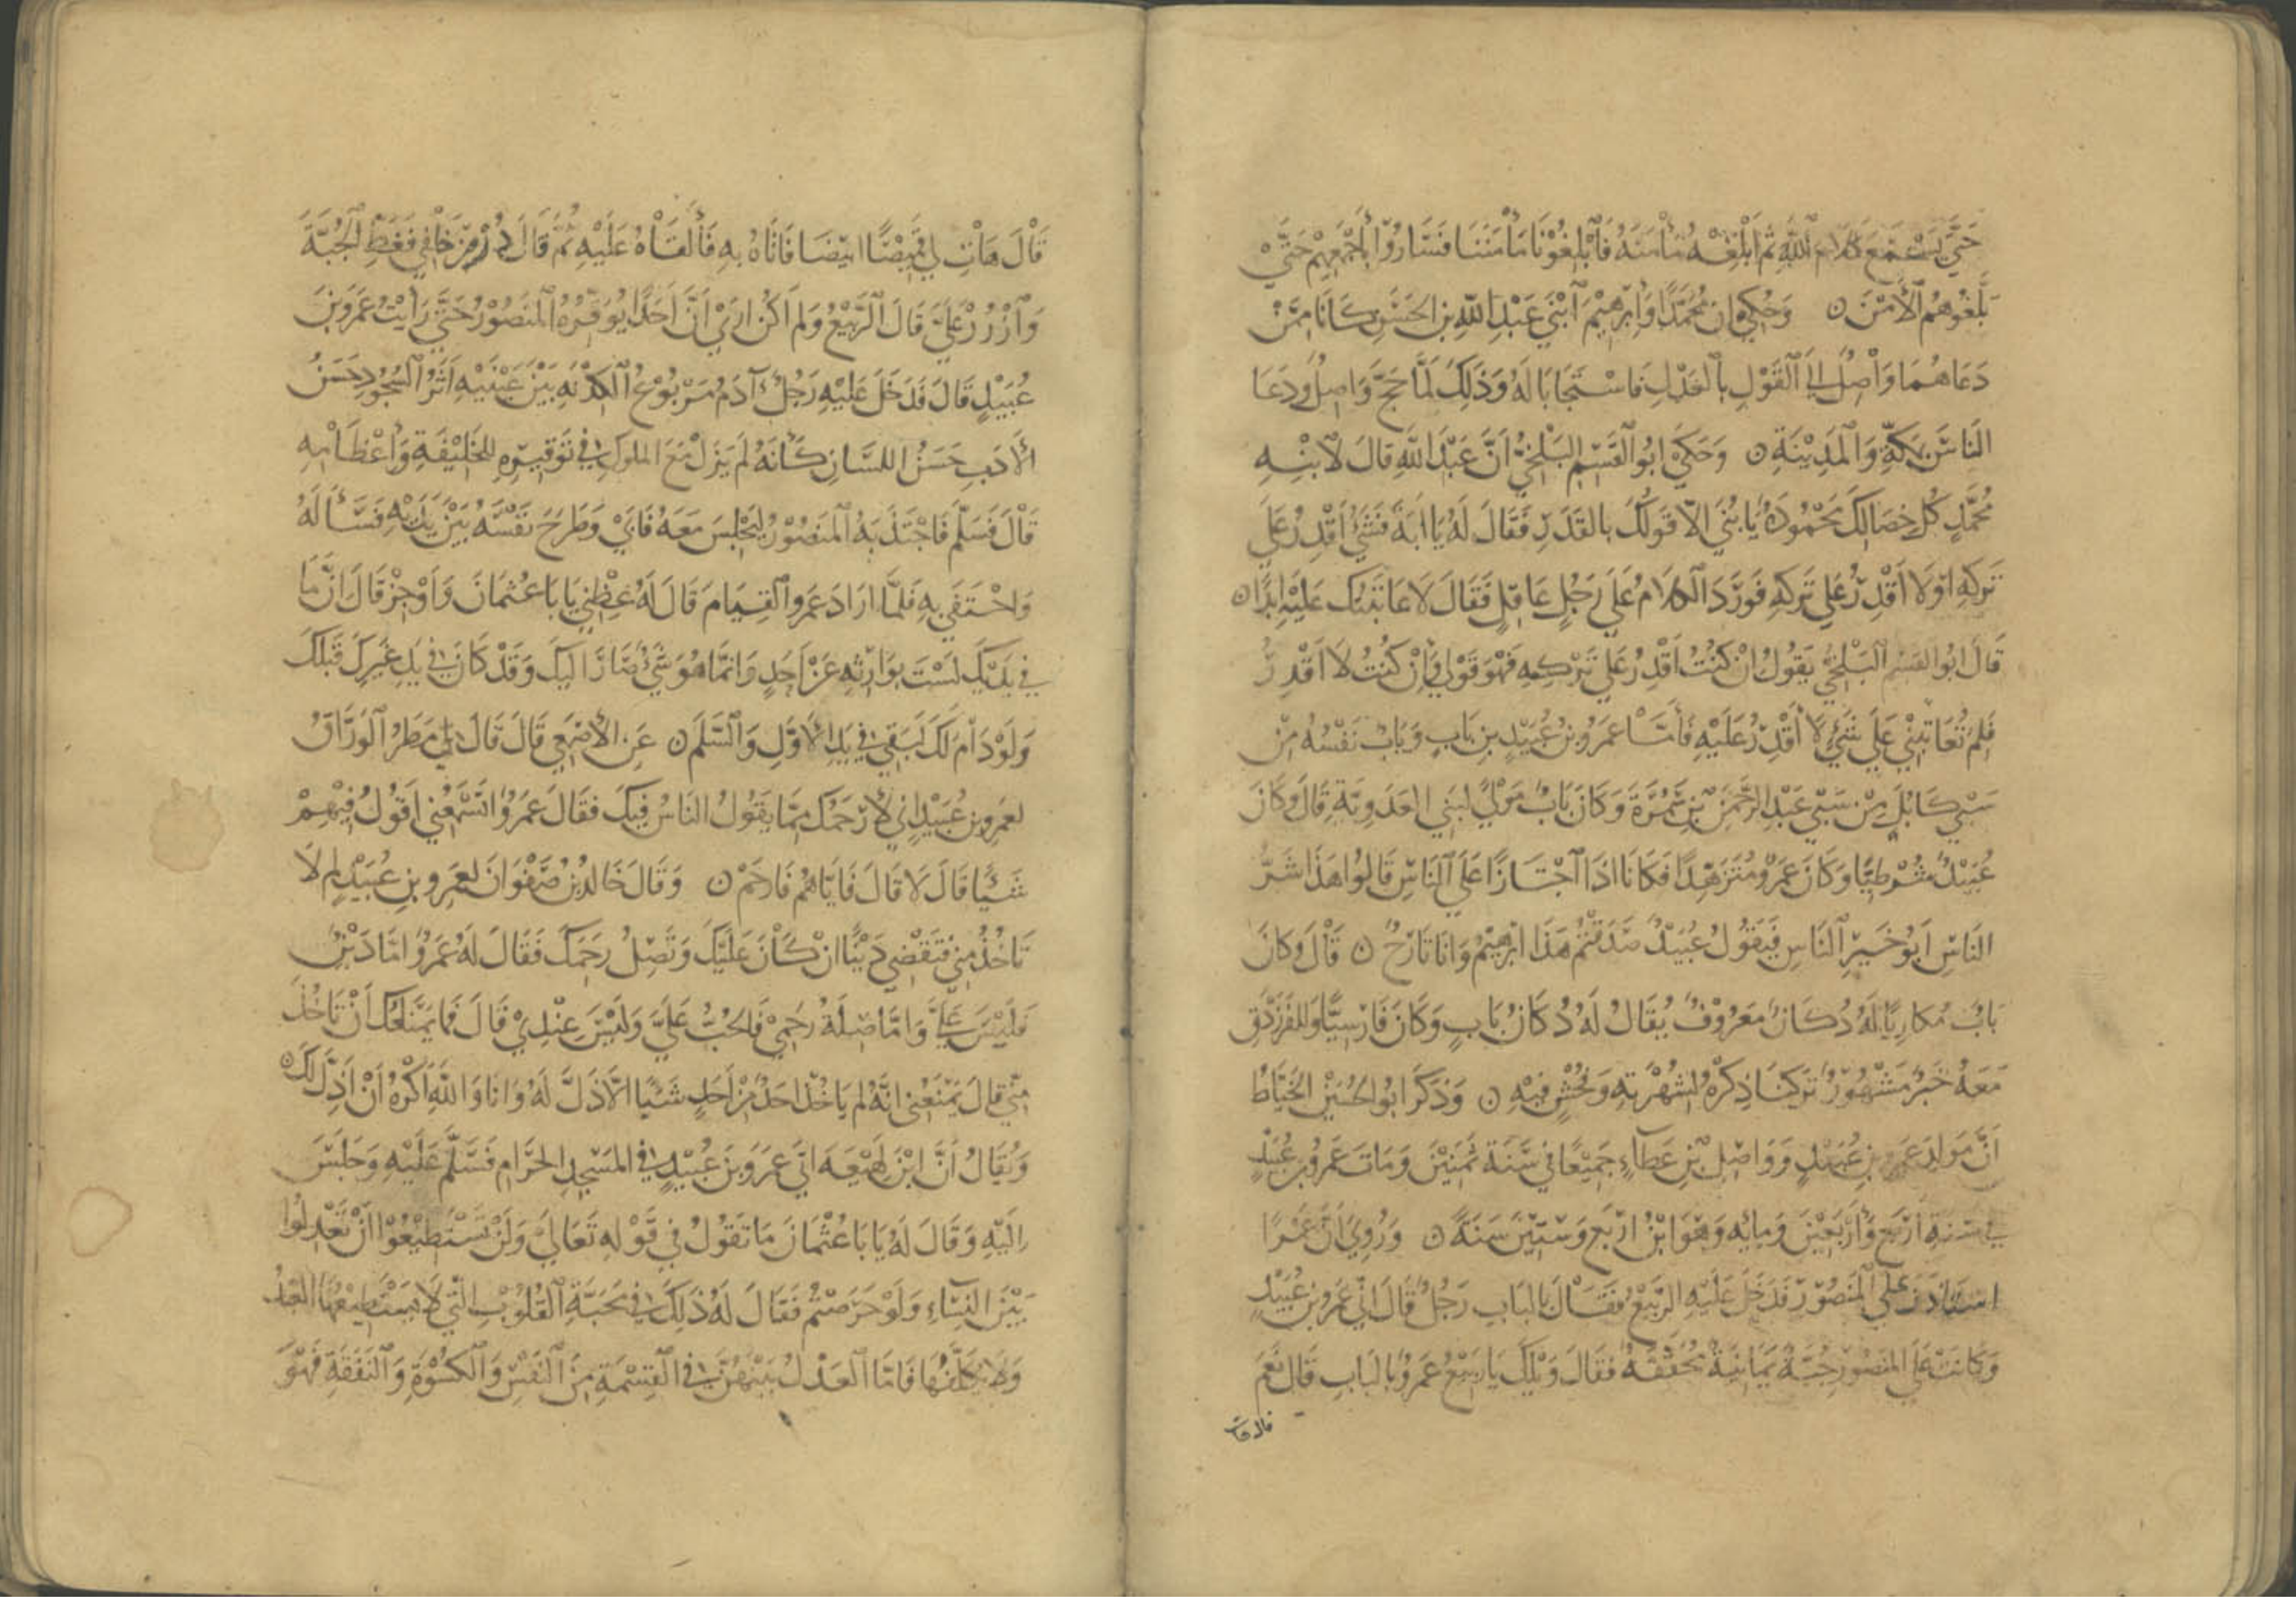 حَتَّى يَسْتَمِعَ كَلَامَ اللَّهِ ثُمَّ أَبْلِغْهُ مَأْمَنَهُ فَأَبْلِغُوْنَا مَأْمَنَنَا فَسَارُوْا بِأَجْمَعِهِمْ حَتَّى
بَلَّغُوهُمُ الأَمْنَ ن وَحُكِيَ ان مُحَمَّدًا وَابْرهِيْمَ ابْنَيْ عَبْدِ اللَّهِ بن الحَسَنِ كَانَا مِمَّنْ
دَعَاهُمَا وَاصِلٌ الَى القَوْلِ بِالعَدْلِ فَاسْتَجَابَا لَهُ وَذَلِكَ لَمَّا حَجَّ وَاصِلٌ وَدَعَا
النَاسَ بمَكَّةَ وَالمَدِيْنَةِ ن وَحَكَى ابُو القَسِمِ البَلْخِيُّ انَّ عَبْدَ اللَّهِ قَالَ لِابْنِهِ
مُحَمَّدٍ كُلُّ خِصَالِكَ مَحْمُودَةٌ يَا بُنَيَّ الَّا قَولَكَ بالقَدَرِ فَقَالَ لَهُ يَا ابَةَ فَشَيْءٌ اَقْدِرُ عَلَى
تَركِهِ اوْ لَا اَقْدِرُ عَلَى تَركِهِ فَوَرَّدَ الكَلَامَ عَلَى رَجُلٍ عَاقِلٍ فَقَالَ لَا عَاتَبتُكَ عَلَيْهِ ابَدًا ن
قَالَ ابُو القَسِم البَلْخِيُّ يَقُولُ انْ كُنْتُ اَقْدِرُ عَلَى تَرْكِهِ فَهُوَ قَوْلِي وَاِنْ كُنْتُ لَا اَقْدِرُ
فَلِمَ تُعَاتِبُنِي عَلَى شَيْءٍ لَا أَقْدِرُ عَلَيْهِ فَأَمَّا عَمْرُو بنُ عُبَيْدِ بنِ بَابٍ وَبَابٌ نَفْسُهُ مِنْ
سَبْيِ كَابُلَ مِنْ سَبْيِ عَبْدِ الرَّحْمَنِ بْنِ سَمُرَةَ وَكَانَ بَابٌ مَوْلًى لِبَنِي العَدَوِيَّةِ قَالَ وَكَانَ
عُبَيْدٌ شُرْطِيًّا وَكَانَ عَمْرٌو مُتَزَهِّدًا فَكَانَا اذَا اجْتَازَا عَلَى النَاسِ قَالُوا هَذَا شَرُّ
النَاسِ اَبُو خَيْرِ النَاسِ فَيَقُولُ عُبَيْدٌ صَدَقْتُمْ هَذَا ابْرهِيْمُ وَانَا تَارَحُ ن قَالَ وَكَانَ
بَابٌ مُكَارِيًا لَهُ دُكَانٌ مَعْرُوْفٌ يُقَالُ لَهُ دُكَانُ بَابٍ وَكَانَ فَارْسِيًّا وَلِلفَرَزْدَقِ
مَعَهُ خَبَرٌ مَشْهُوْرٌ تَركنَا ذِكْرَهُ لِشُهْرَتِهِ وَفُحْشٍ فِيْهِ ن وَذَكَرَ ابُو الحُسَيْنِ الخَيَّاطُ
اَنَّ مَولِدَ عَمرِو بنِ عُبَيْدٍ وَوَاصِلِ بْنِ عَطَاءٍ جَمِيْعًا فِي سَنَةِ ثَمَنِيْنَ وَمَاتَ عَمْرُو بن عُبَيْدٍ
فِي سَنَةِ اَرْبَعٍ وَأَرْبَعِيْنَ وَمِايةٍ وَهْوَ ابْنُ ارْبَعٍ وَسِتِيْنَ سَنَةً ن وَرُوِيَ انَّ عَمْرًا
اسْتَاذَنَ عَلَى المَنصُوْرِ فَدَخَلَ عَلَيْهِ الرَّبِيْعُ فَقَالَ بالبَابِ رَجُلٌ قَالَ انِّي عَمْرُو بن عُبَيْدٍ
وَكَانَتْ عَلَى المَنصُوْرِ جُبَّةٌ يَمَانِيَةٌ فَقَالَ وَيْلَكَ يَا رَبِيْعُ عَمْرٌو بالبَابِ قَالَ نَعَمْ
قال هات
قَالَ هَاتِ لِي قَمِيْصًا ابيَضَ فَاتَاهُ بِهِ فَأَلقَاهُ عَلَيْهِ ثُمَّ قَالَ دُرْ مِنْ خَلْفِي فَغَطِّ الجُبَّةَ
وَازْرُرْ عَلَيَّ قَالَ الرَّبِيْعُ وَلَم اَكُنْ ارَى اَنَّ اَحَدًا يُوَقِّرُهُ المَنصُوْرُ حَتَّى رَاَيْتُ عَمْرَو بنَ
عُبَيْدٍ قَالَ فَدَخَلَ عَلَيْهِ رَجُلٌ آدَمُ مَرْبُوْعُ بَيْنَ عَيْنَيْهِ اَثَرُ السُجُوْدِ حَسَنُ
الأَدَبِ حَسَنُ اللسَانِ كَأَنَهُ لَم يَزَلْ مَعَ المُلُوكِ فِي تَوقِيْرِهِ لِلخَلِيْفَةِ وَاعْظَامِهِ
قَالَ فَسَلَّمَ فَاجْتَذَبَهُ المَنصُوْرُ لِيَجْلِسَ مَعَهُ فَابَى وَطَرَحَ نَفْسَهُ بَيْنَ يَدَيْهِ فَسَأَلَهُ
وَاحْتَفَى بِهِ فَلَمَّا ارَادَ عَمرٌو القِيَامَ قَالَ لَهُ عِظْنِي يَا بَا عُثمَانَ وَاَوْجِزْ قَالَ انَّ مَا
فِي يَدَيْكَ لَسْتَ بِوَارِثِهِ عَنْ اَحَدٍ وَانَّمَا هُوَ شَيْءٌ صَارَ الَيكَ وَقَدْ كَانَ فِي يَدِ غَيرِكَ قَبْلَكَ
وَلَو دَامَ لَكَ لَبَقِيَ فِي يَدِ الأَوَّلِ وَالسَّلَم ن عَنِ الأَصْمَعِي قَالَ قَالَ لي مَطَرُ الوَرَّاقُ
لِعَمْرِو بنِ عُبَيْدٍ اني لَأَرْحَمُكَ مِمَّا يَقُولُ النَاسُ فِيكَ فَقَالَ عَمْرٌو اتَسْمَعُنِي اَقُولُ فِيْهِمْ
شَيْئًا قَالَ لَا قَالَ فَايَّاهُمْ فَارحَمْ ن وَقَالَ خَالِدُ بنُ صَفْوَانَ لِعَمرِو بنِ عُبَيْدٍ لِم لَا
تَاخُذُ مِنِي فَتَقْضِي دَيْنًا انْ كَانَ عَلَيْكَ وَتَصِلُ رحِمَكَ فَقَالَ لَهُ عَمْرٌو امَّا دَيْنٌ
فَلَيْسَ عَلَيَّ وَامَّا صِلَةُ رَحِمِي فَلَا يَجِبُ عَلَيَّ وَلَيْسَ عِنْدِيْ قَالَ فَمَا يَمْنَعُكَ اَنْ تَاخُذَ
مِنِّي قَالَ يَمْنَعُنِي انَّهُ لم يَاخُذْ احَدٌ مِنْ اَحَدٍ شَيْئًا الَّا ذَلَّ لَهُ وَانَا وَاللَّهِ اَكْرَهُ اَنْ اَذِلَّ لَكَ ن
وَيُقَالُ اَنَّ ابْنَ لَهِيْعَةَ اتَى عَمْرَو بنَ عُبَيْدٍ فِي المَسْجِدِ الحَرَامِ فَسَلَّمَ عَلَيْهِ وَجَلَسَ
اِلَيْهِ وَقَالَ لَهُ يَا بَا عُثْمَانَ مَا تَقُولُ فِي قَوْلِهِ تَعَالَى وَلَنْ تَسْتَطِيْعُوا اَنْ تَعْدِلُوا
بَيْنَ النِسَاءِ وَلَوْ حَرَصْتُم فَقَالَ لَهُ ذَلِكَ فِي مَحَبَّةِ القُلُوبِ الَّتِي لَا يَسْتَطِيْعُهَا العَبْدُ
وَلَا يُكَلَّفُهَا فَامَّا العَدْلُ بَيْنَهُنَّ فِي القِسْمَةِ مِنَ النَفْسِ وَالكِسْوَةِ وَالنَفَقَةِ فَهُوَ